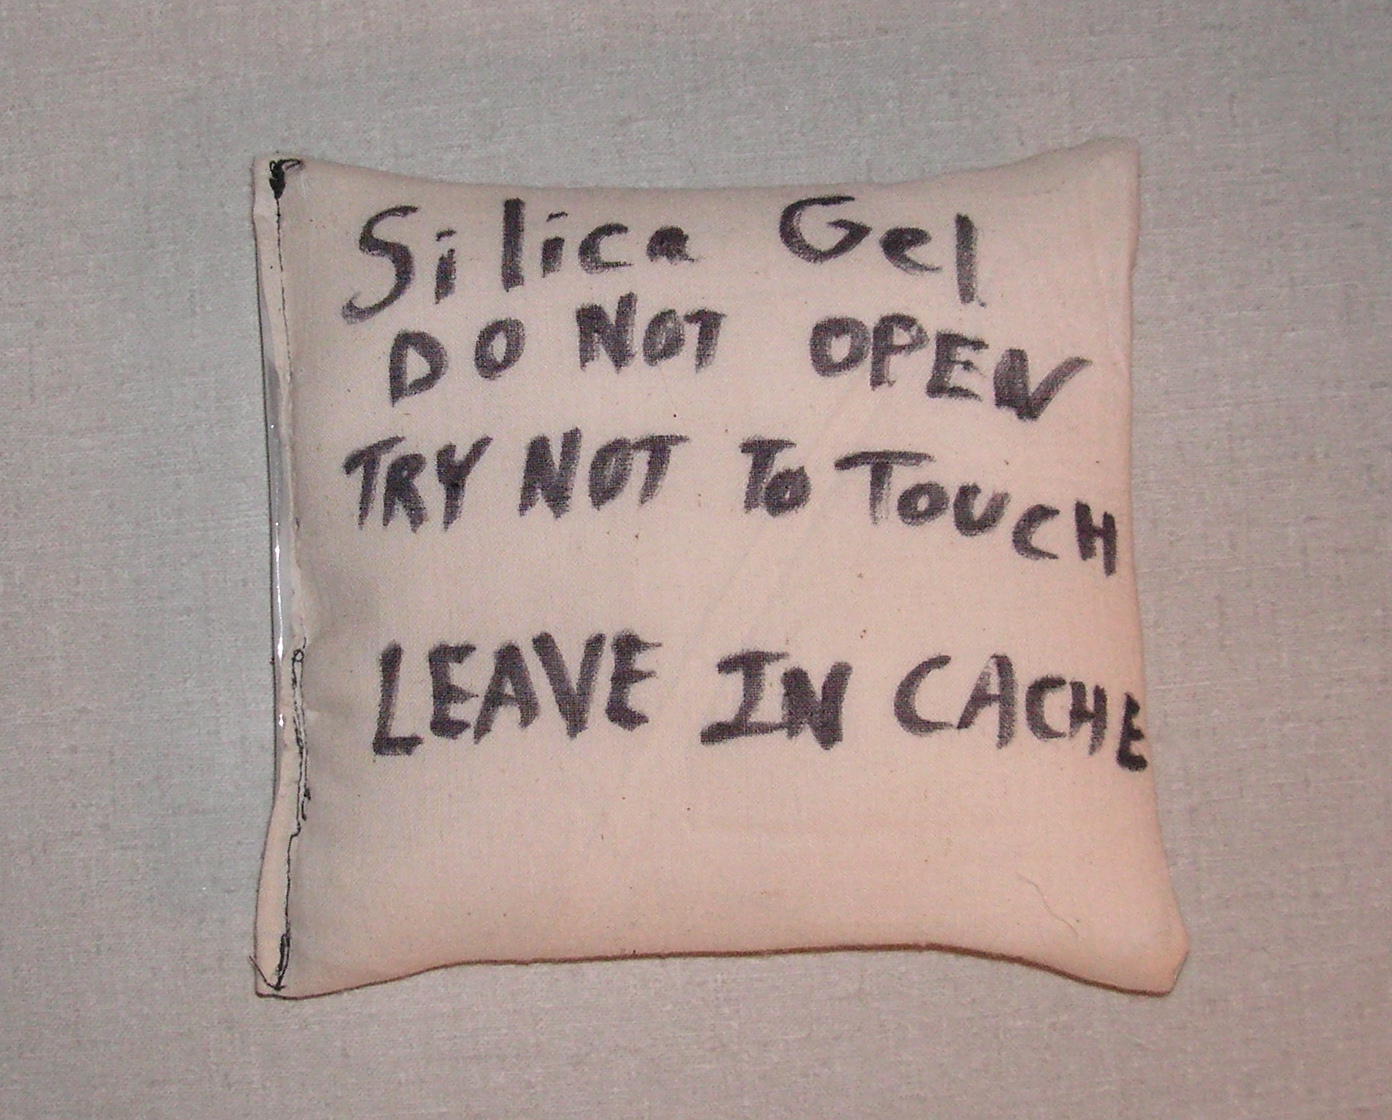 Silica Gel
DO NOT OPEN
TRY NOT TO TOUCH
LEAVE IN CACHE